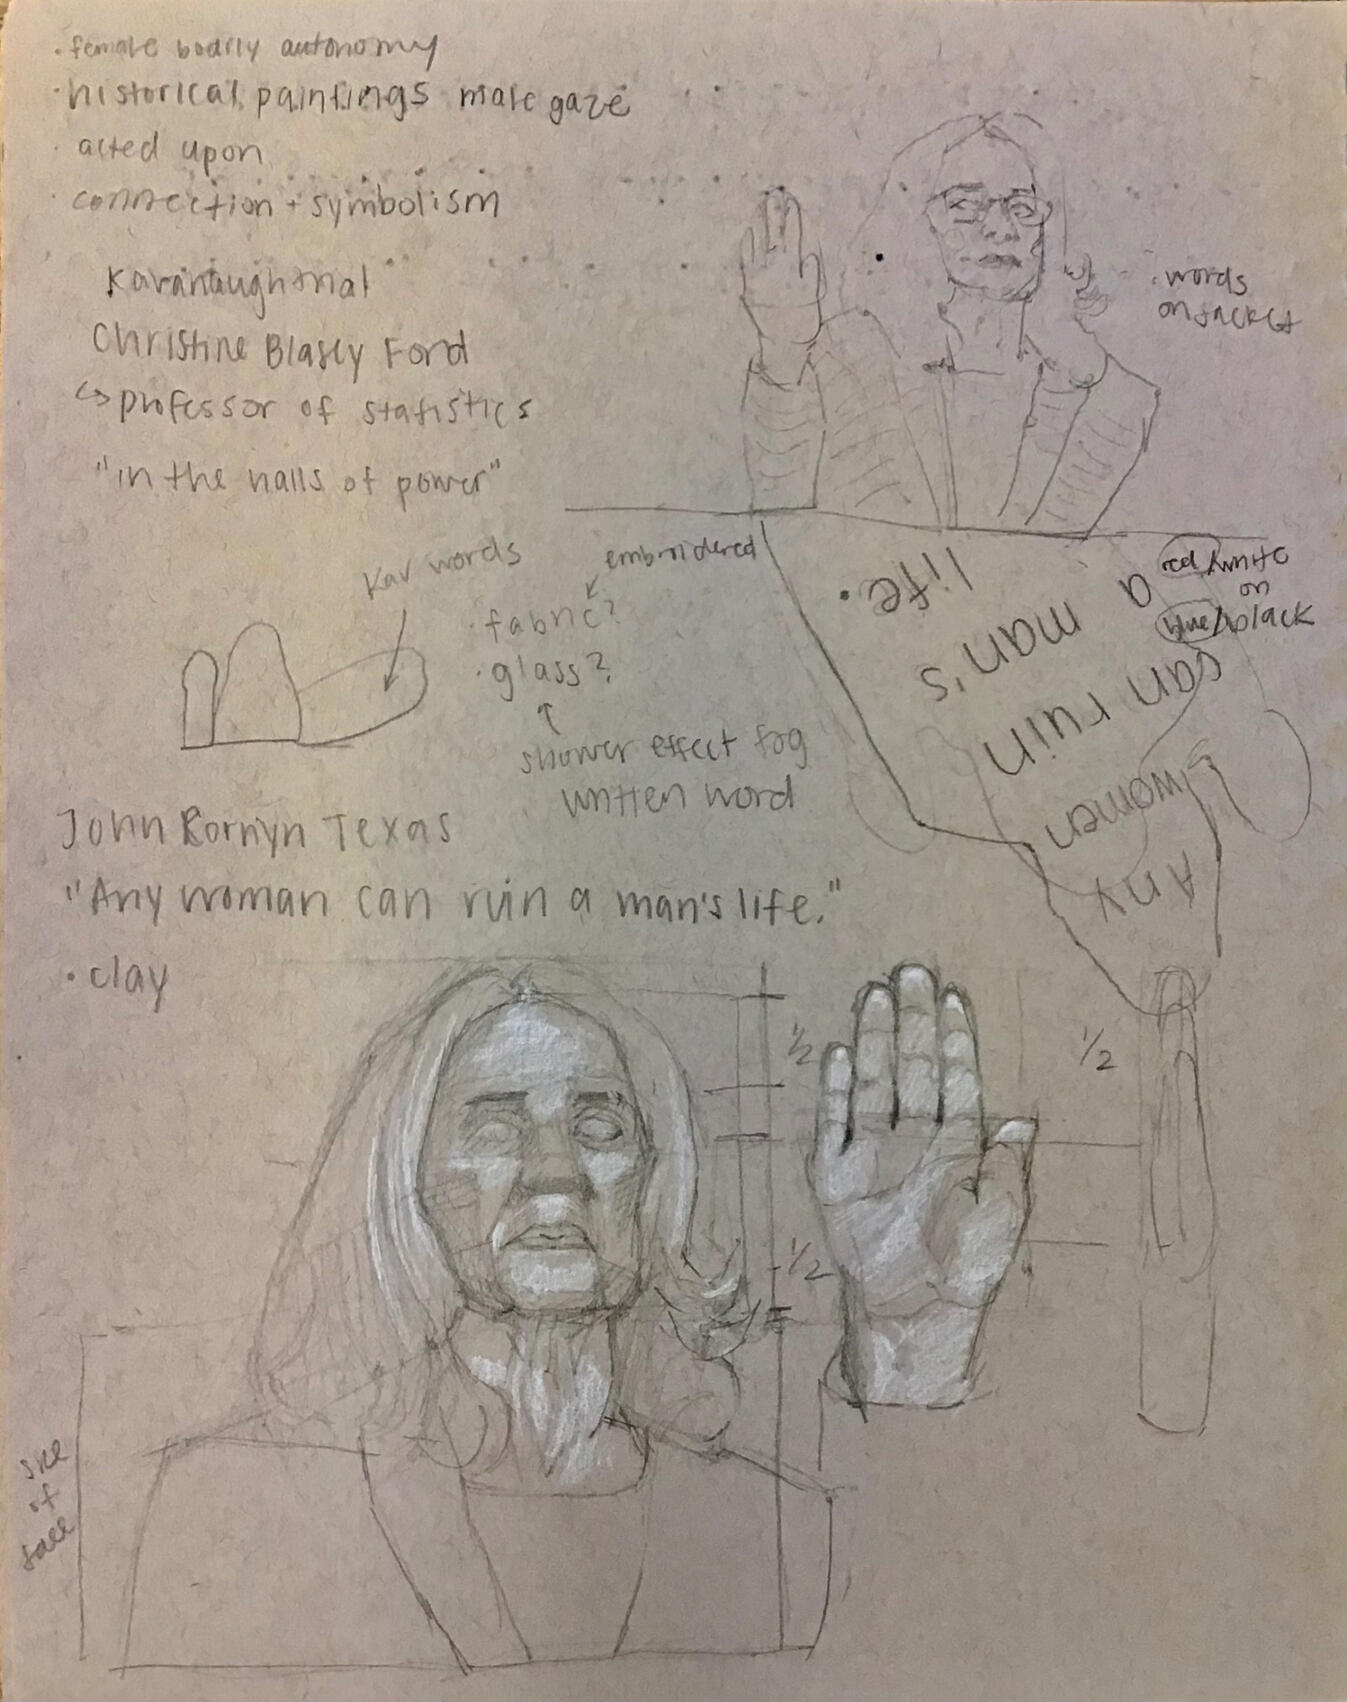 · female bodily autonomy
· historical paintings male gaze
· acted upon
· connection + symbolism
Kavanaugh trial
Christine Blasey Ford
↳ professor of statistics
"in the halls of power"
· words
on jacket
Kav words
embroidered
· fabric?
· glass?
shower effect fog
written word
red/white
on
blue/black
Any
women
can ruin
a man's
life.
John Cornyn Texas
"Any woman can ruin a man's life."
· clay
1/2
1/2
1/2
size
of
face